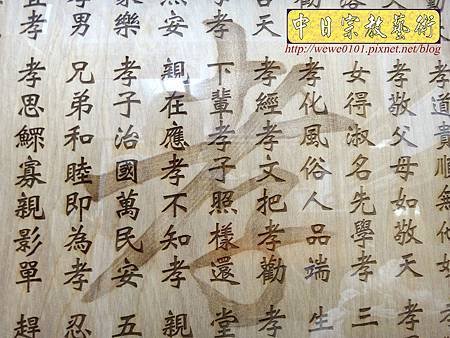 中日宗教藝術
http://wewe0101.pixnet.net/blog
孝道貴順無他
孝敬父母如敬天 孝
女得淑名先學孝 三
孝化風俗人品端 生
天 孝經孝文把孝勸 孝
下輩孝子照樣還 堂
安 親在應孝不知孝 親
樂 孝子治國萬民安 五
男 兄弟和睦即為孝 忍
孝 孝思鰥寡親影單 趕
孝